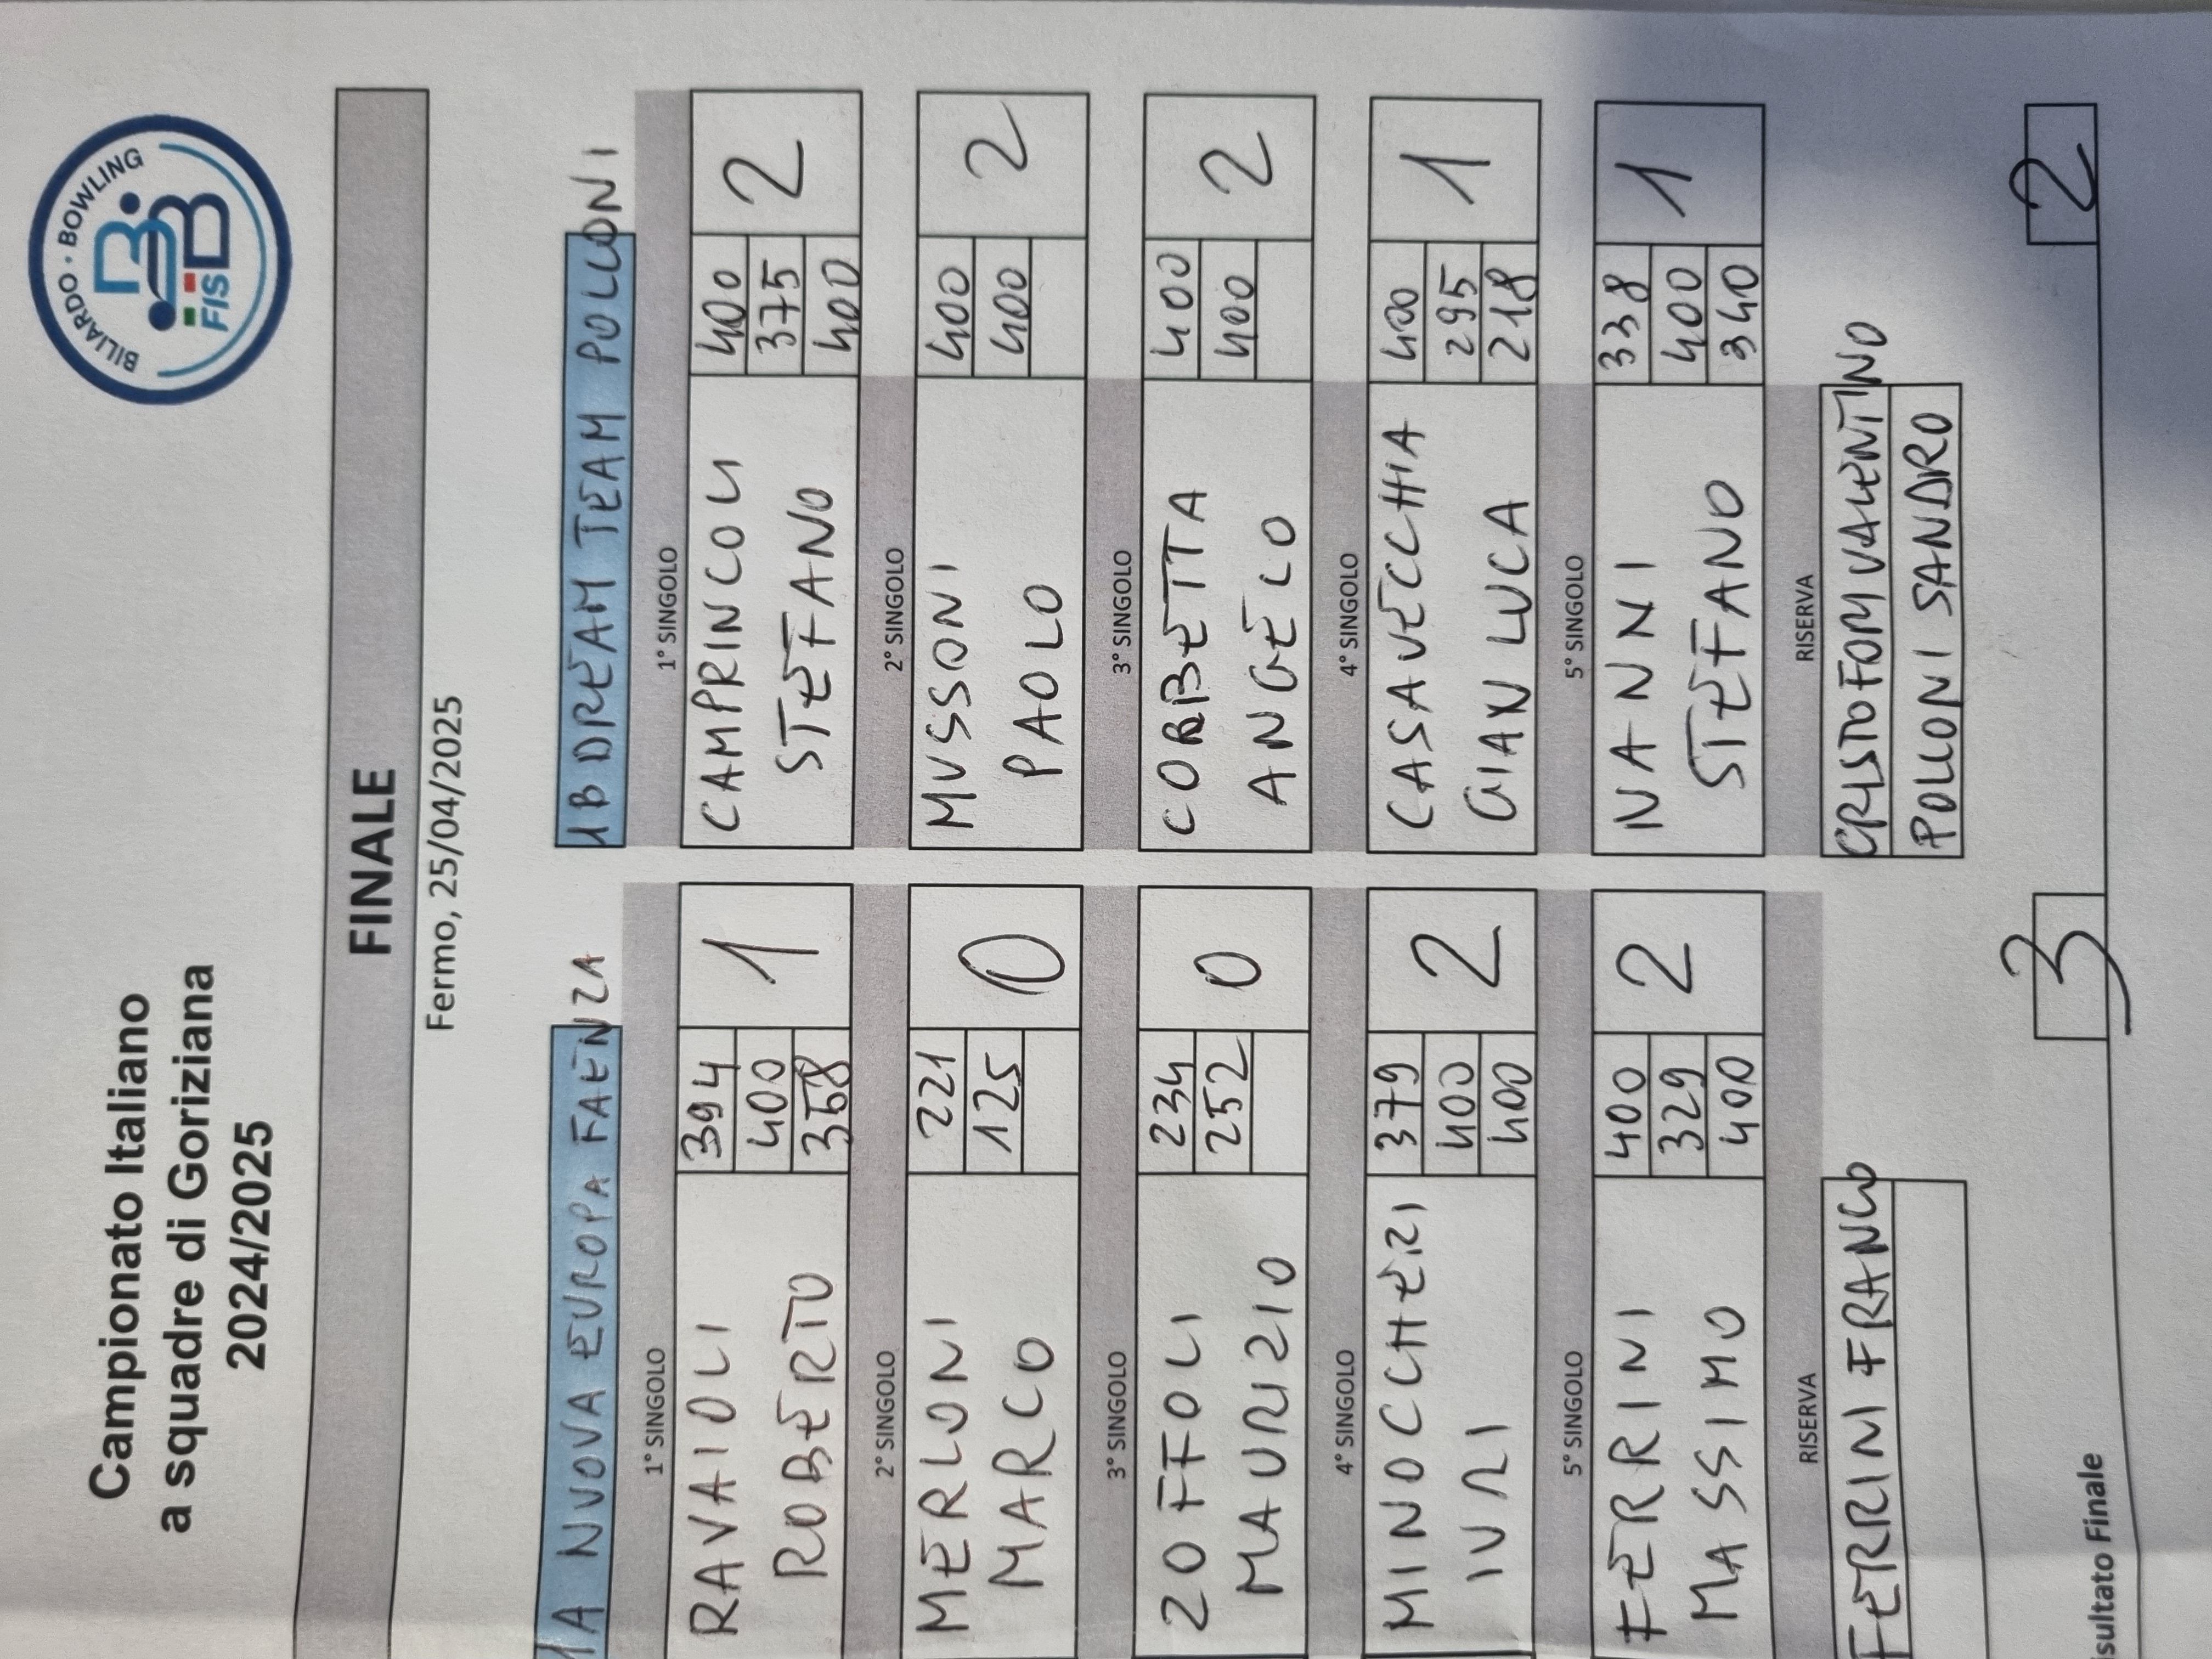 Campionato Italiano
a squadre di Goriziana
2024/2025
BILIARDO · BOWLING
FISBB
FINALE
Fermo, 25/04/2025
1A NUOVA EUROPA FAENZA
1° SINGOLO
RAVAIOLI
ROBERTO
394
400
358
1
2° SINGOLO
MERLONI
MARCO
221
125
0
3° SINGOLO
ZOFFOLI
MAURIZIO
234
252
0
4° SINGOLO
MINOCCHERI
IURI
379
400
400
2
5° SINGOLO
FERRINI
MASSIMO
400
329
400
2
RISERVA
FERRINI FRANCO
1B DREAM TEAM POLLONI
1° SINGOLO
CAMPRINCOLI
STEFANO
400
375
400
2
2° SINGOLO
MUSSONI
PAOLO
400
400
2
3° SINGOLO
CORBETTA
ANGELO
400
400
2
4° SINGOLO
CASAVECCHIA
GIAN LUCA
400
295
218
1
5° SINGOLO
NANNI
STEFANO
338
400
340
1
RISERVA
CRISTOFORI VALENTINO
POLLONI SANDRO
isultato Finale
3
2